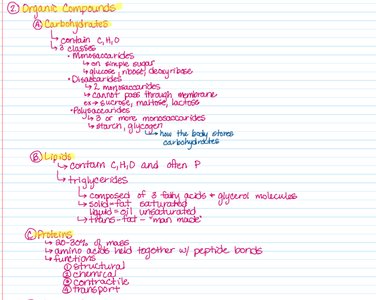 ② Organic Compounds
Ⓐ Carbohydrates
↳ contain C, H, O
↳ 3 classes
• Monosaccarides
↳ one simple sugar
↳ glucose, ribose, deoxyribase
• Disaccarides
↳ 2 monosaccarides
↳ cannot pass through membrane
ex → sucrose, maltose, lactose
• Polysaccarides
↳ 3 or more monosaccarides
↳ starch, glycogen
↳ how the body stores
carbohydrates
Ⓑ Lipids
↳ contain C, H, O and often P
↳ triglycerides
↳ composed of 3 fatty acids + glycerol molecules
↳ solid-fat saturated
liquid-oil unsaturated
↳ trans-fat - "man made"
Ⓒ Proteins
↳ 20-30% of mass
↳ amino acids held together w/ peptide bonds
↳ functions
① structural
② chemical
③ contractile
④ transport